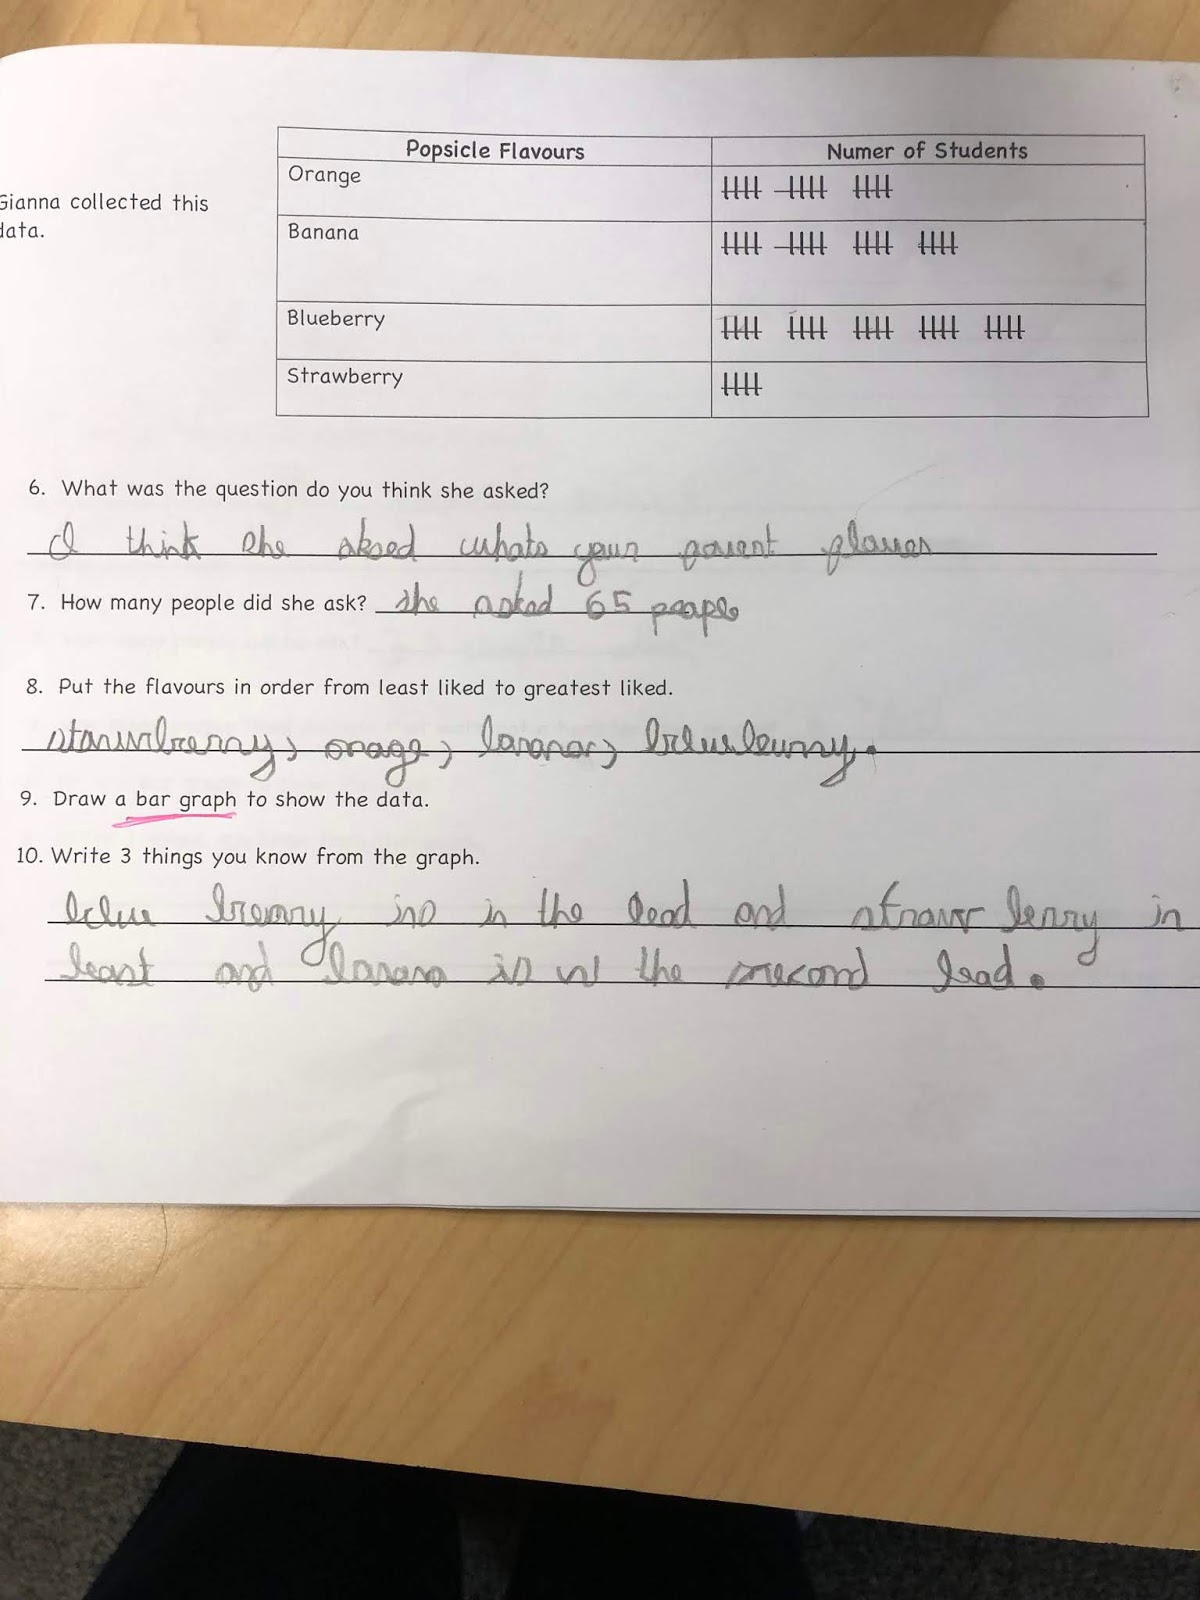 Popsicle Flavours Numer of Students
Orange
Gianna collected this
data.
Banana
Blueberry
Strawberry
6. What was the question do you think she asked?
I think she aksed whats your favent flaver
7. How many people did she ask? she asked 65 people
8. Put the flavours in order from least liked to greatest liked.
starwberry, ornage, banana, blueberry.
9. Draw a bar graph to show the data.
10. Write 3 things you know from the graph.
blue berry is in the lead and straw berry in
least and banana is in the second lead.